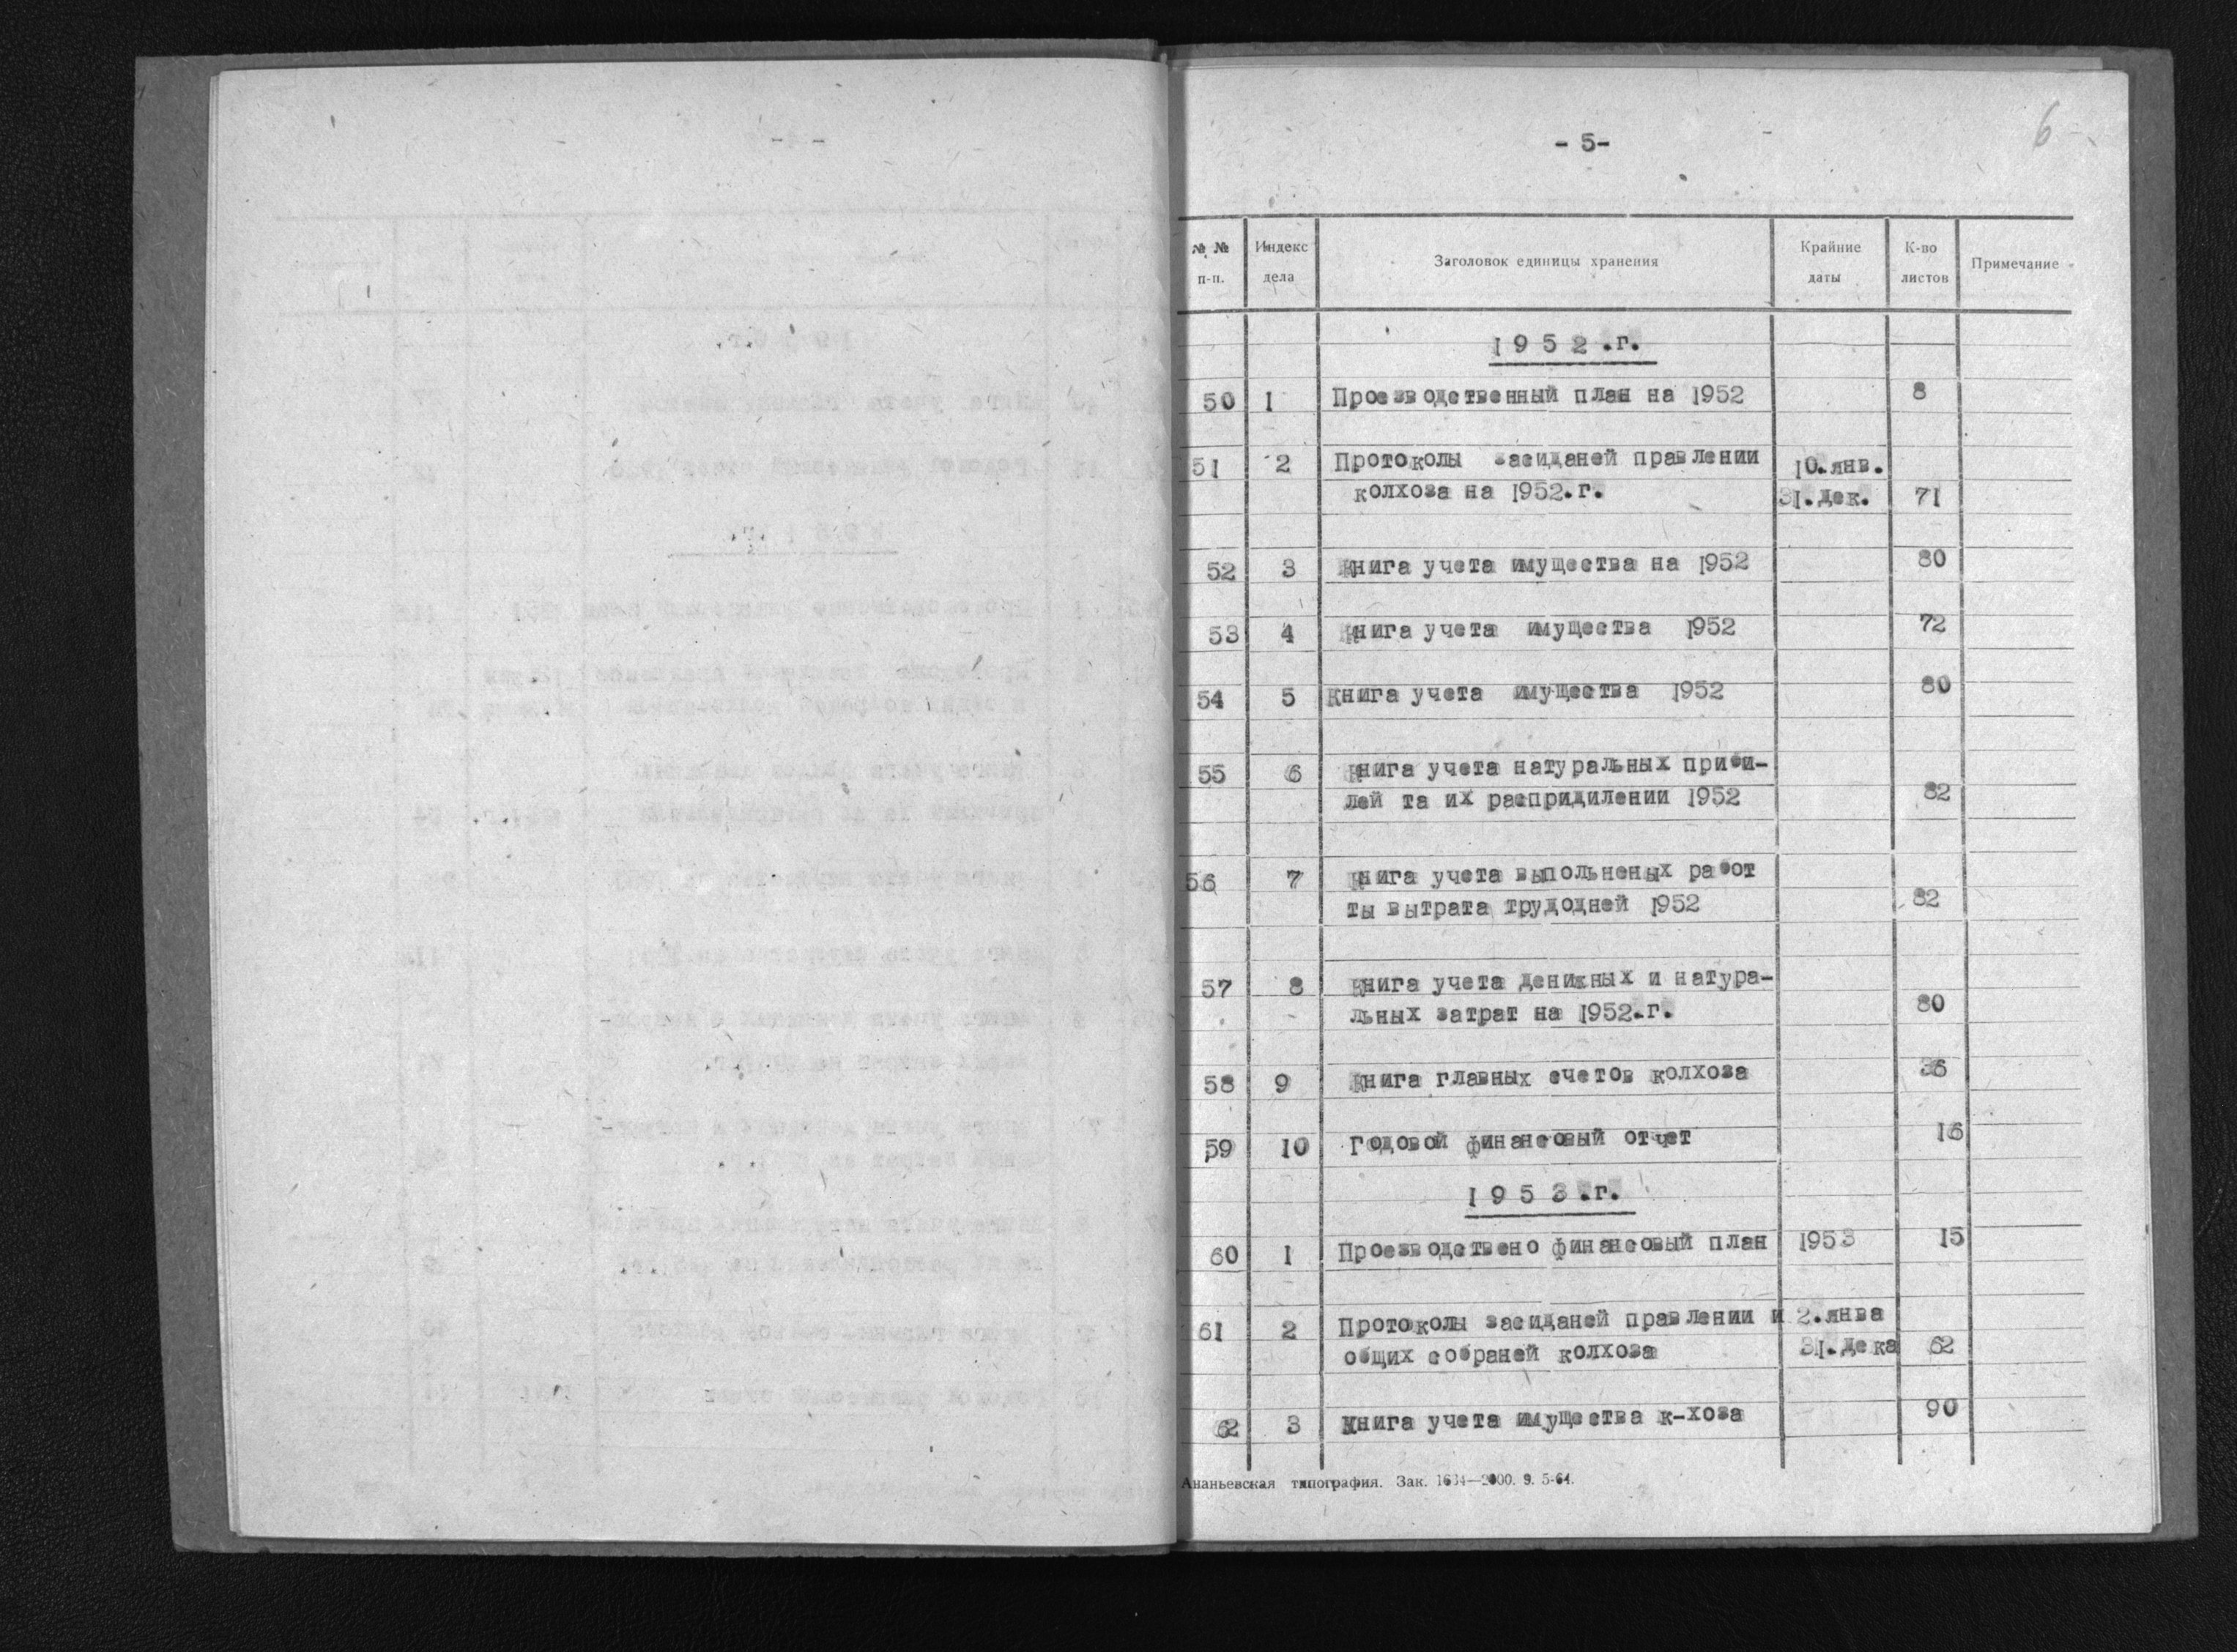 - 5-
6
№ № Индекс Заголовок единицы хранения Крайние К-во Примечание
п-п. дела даты листов
1 9 5 2 .г.
50 1 Проезводственный план на 1952 8
51 2 Протоколы засиданей правлении 10.янв.
колхоза на 1952.г. 31.дек. 71
52 3 Книга учета имущества на 1952 80
53 4 Книга учета имущества 1952 72
54 5 Книга учета имущества 1952 80
55 6 Книга учета натуральных приби-
лей та их распридилении 1952 82
56 7 Книга учета выпольненых работ
ты вытрата трудодней 1952 82
57 8 Книга учета денижных и натура-
льных затрат на 1952.г. 80
58 9 Книга главных счетов колхоза 36
59 10 Годовой финансовый отчет 16
1 9 5 3 .г.
60 1 Проезводствено финансовый план 1953 15
61 2 Протоколы засиданей правлении и 2.янва
общих собраней колхоза 31.дека 62
62 3 Книга учета имущества к-хоза 90
Ананьевская типография. Зак. 1634—2000. 9. 5-64.